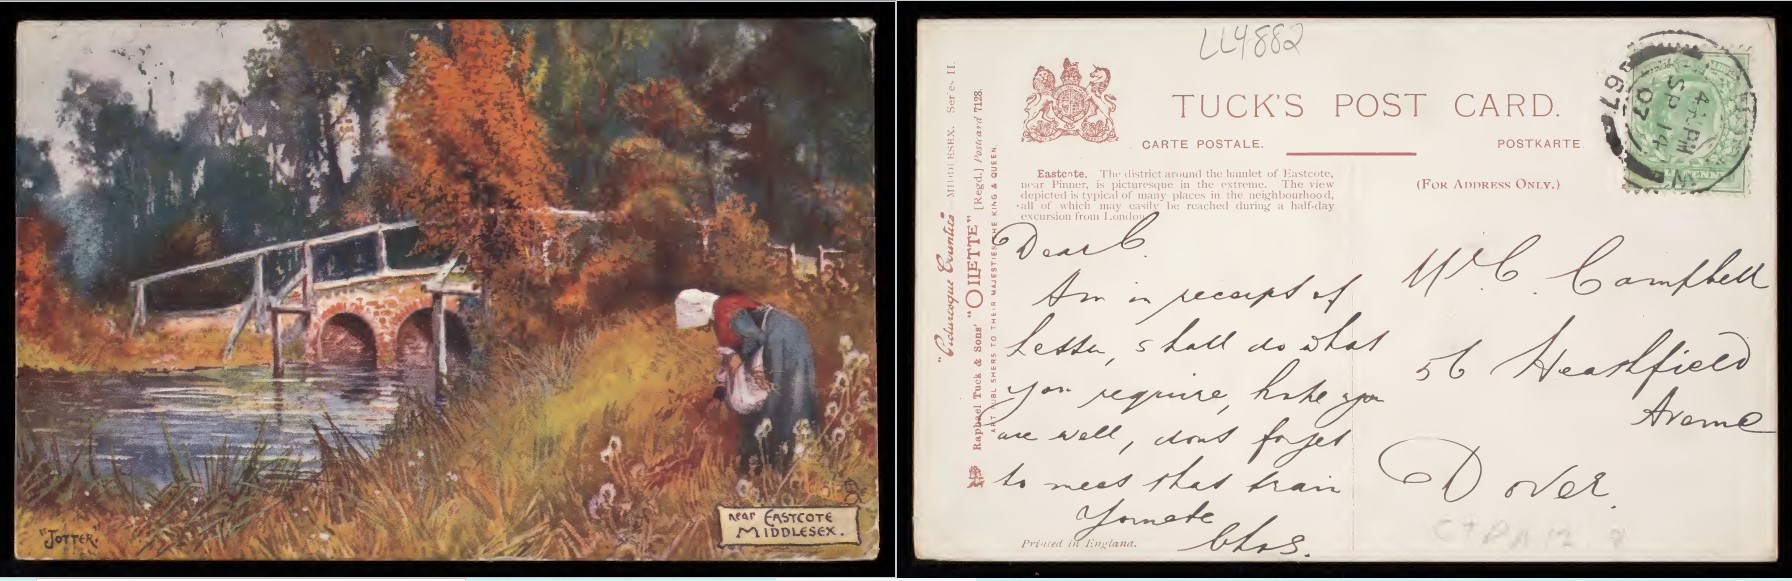 "JOTTER."
near EASTCOTE
MIDDLESEX.
LL4882
TUCK'S POST CARD.
CARTE POSTALE.
POSTKARTE.
(FOR ADDRESS ONLY.)
Eastcote. The district around the hamlet of Eastcote,
near Pinner, is picturesque in the extreme. The view
depicted is typical of many places in the neighbourhood,
all of which may easily be reached during a half-day
excursion from London.
"Picturesque Counties" MIDDLESEX. Series II.
Raphael Tuck & Sons' "OILETTE" [Regd.] Postcard 7128.
ART PUBLISHERS TO THEIR MAJESTIES THE KING & QUEEN.
Dear C.
Am in receipt of
Letter, shall do what
you require, hope you
are well, dont forget
to meet that train
Yours
Chas.
Mr C. Campbell
56 Heathfield
Avenue
Dover.
Printed in England.
4 PM
SP 14
07
97